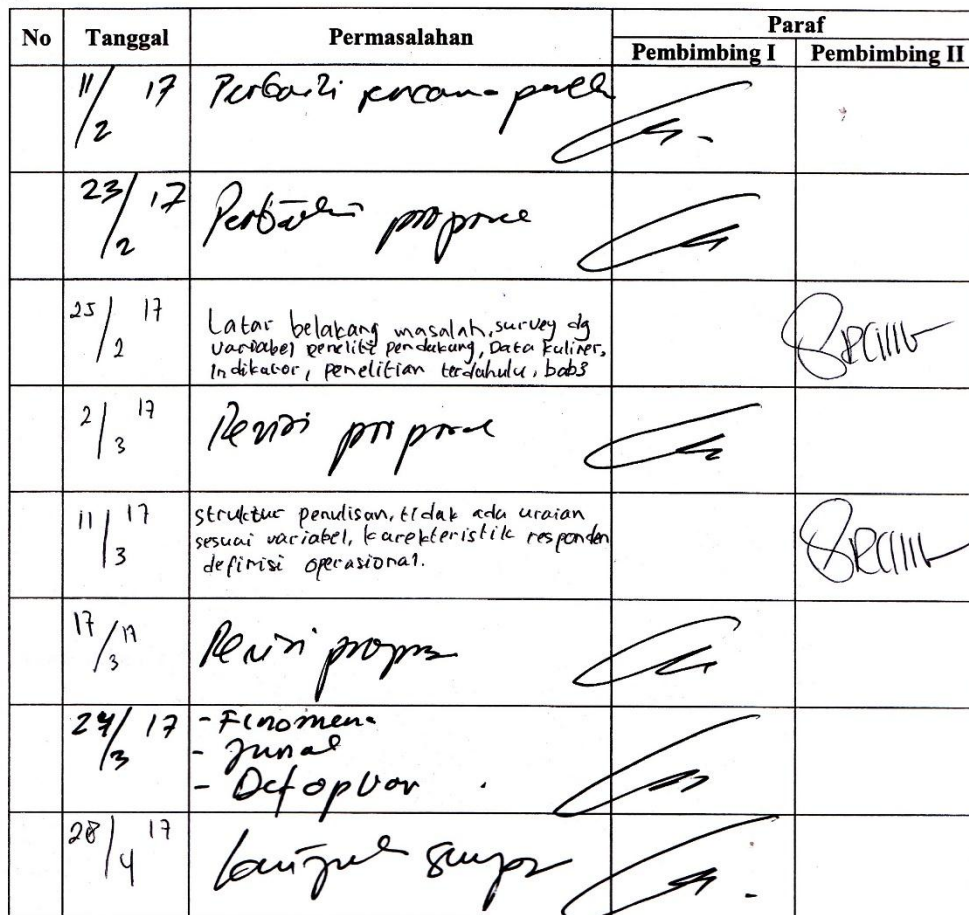 No Tanggal Permasalahan Paraf
Pembimbing I Pembimbing II
11/2 17 Perbaiki rencana
23/2 17 Perbaiki
25/2 17 Latar belakang masalah, survey dg
variabel peneliti pendukung, Data kuliner,
Indikator, penelitian terdahulu, bab3
2/3 17 Revisi
11/3 17 struktur penulisan, tidak ada uraian
sesuai variabel, karekteristik responden
definisi operasional.
17/3 17 Revisi
27/3 17 - Finomena
- Junal
- Def op
28/4 17